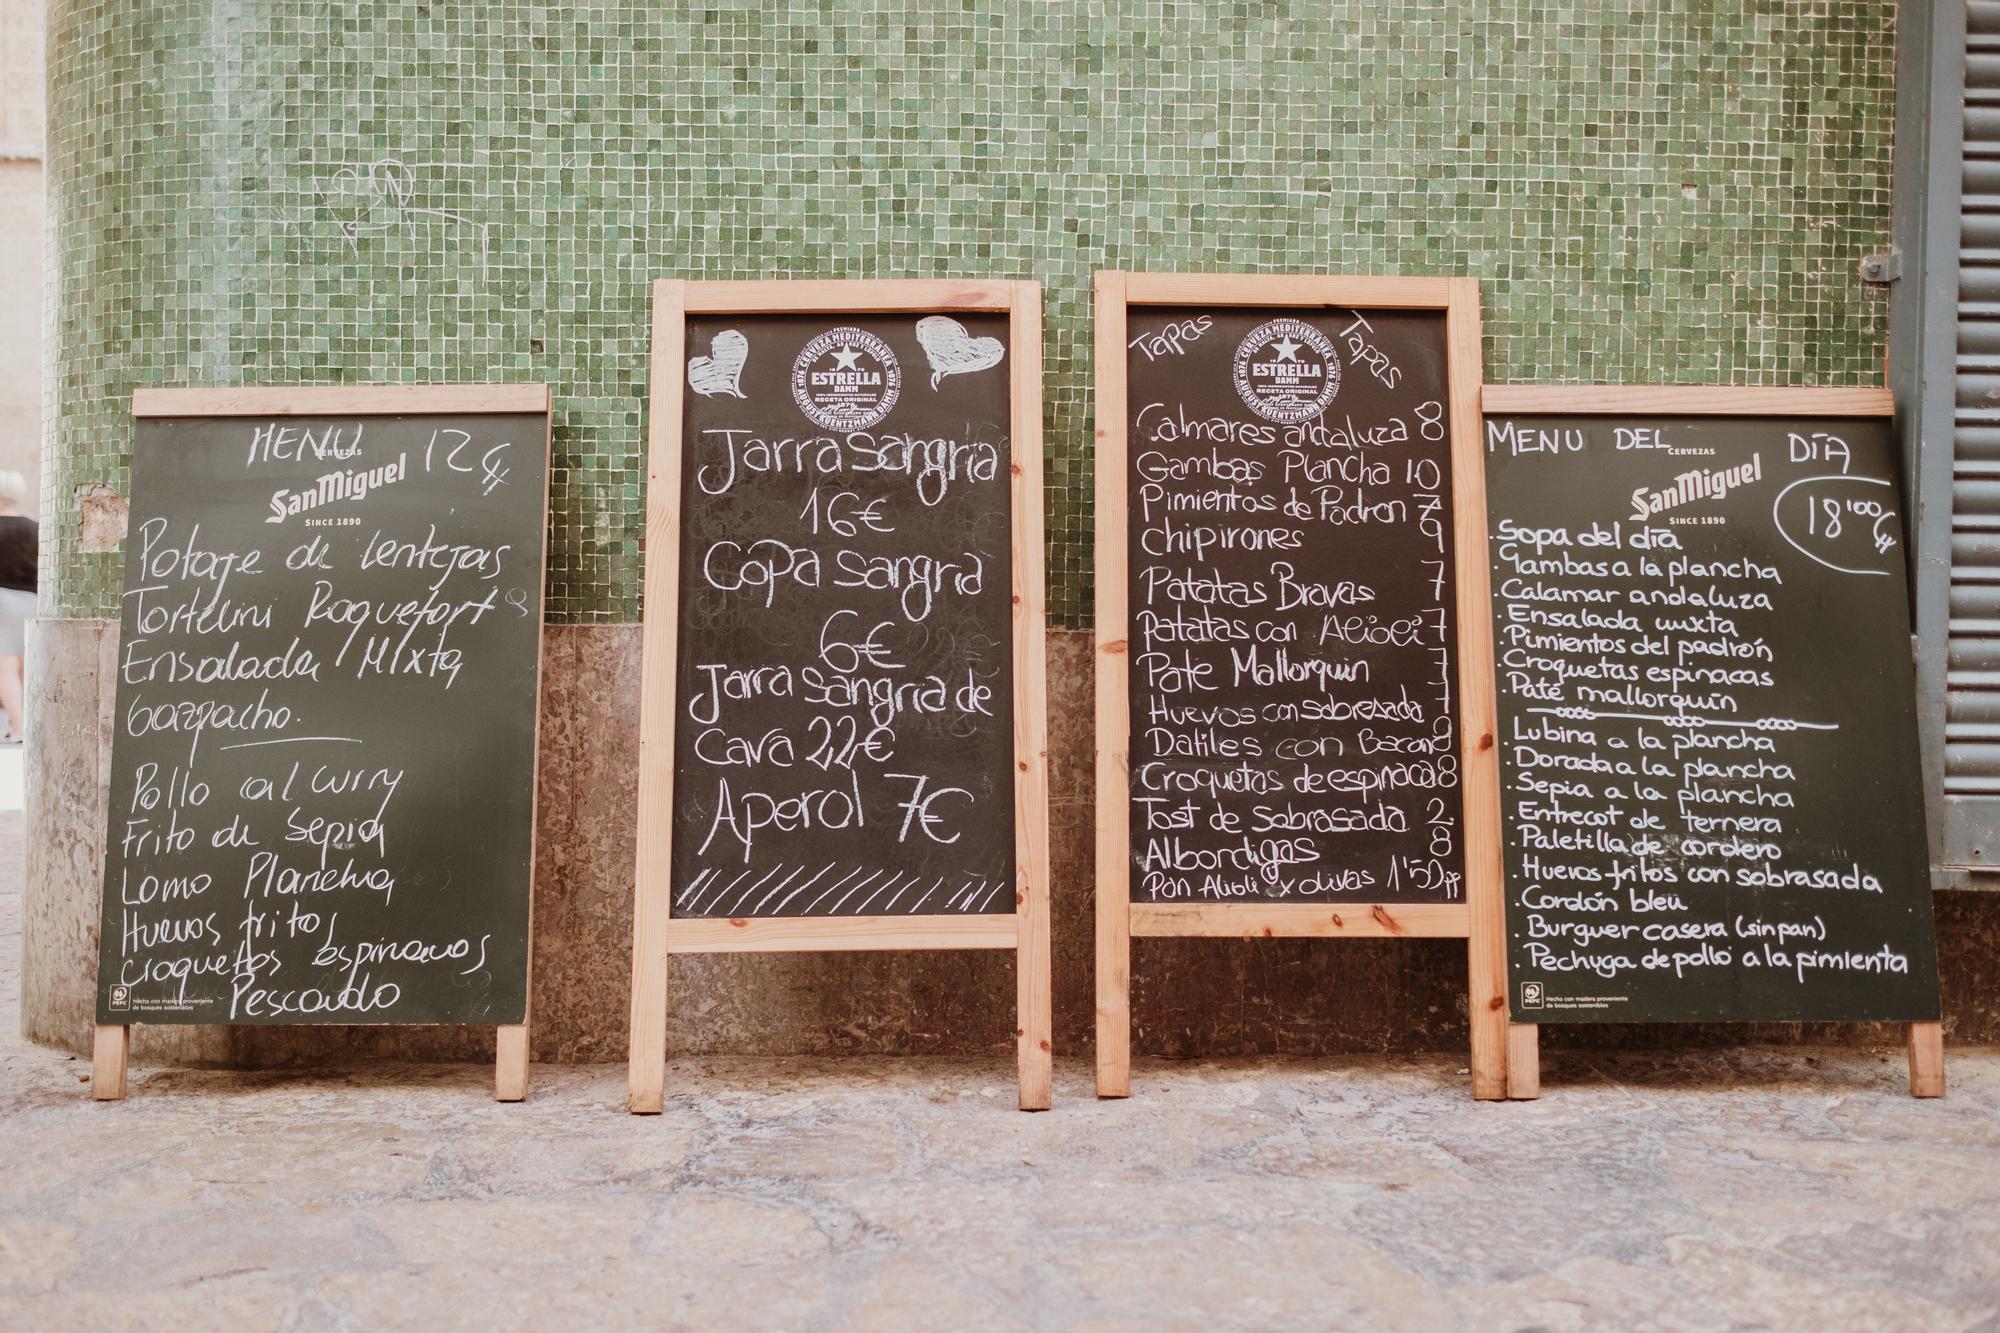 MENU 12 €
CERVEZAS
San Miguel
SINCE 1890
Potaje de lentejas
Tortelini Roquefort
Ensalada Mixta
Gazpacho.
Pollo al curry
Frito de Sepia
Lomo Plancha
Huevos fritos
Croquetas espinacas
Pescado
PEFC
Hecho con madera proveniente
de bosques sostenibles
CERVEZA MEDITERRÁNEA
1876 1876
ESTRELLA
DAMM
100% INGREDIENTES NATURALES
RECETA ORIGINAL
1876
AUGUST KUENTZMANN DAMM
Jarra Sangria
16€
Copa Sangria
6€
Jarra Sangria de
Cava 22€
Aperol 7€
Tapas Tapas
CERVEZA MEDITERRÁNEA
1876 1876
ESTRELLA
DAMM
100% INGREDIENTES NATURALES
RECETA ORIGINAL
1876
AUGUST KUENTZMANN DAMM
Calmares andaluza 8
Gambas Plancha 10
Pimientos de Padron 7
chipirones 9
Patatas Bravas 7
Patatas con Alioli 7
Pate Mallorquin 7
Huevos con sobresada 7
Datiles con Bacon
Croquetas de espinaca 8
Tost de Sobrasada 2
Albondigas 8
Pan Alioli y olivas 1'50 pp
MENU DEL DÍA
CERVEZAS
San Miguel
SINCE 1890
18'00 €
. Sopa del día
. Gambas a la plancha
. Calamar andaluza
. Ensalada mixta
. Pimientos del padrón
. Croquetas espinacas
. Paté mallorquín
. Lubina a la plancha
. Dorada a la plancha
. Sepia a la plancha
. Entrecot de ternera
. Paletilla de cordero
. Huevos fritos con sobrasada
. Cordón bleu
. Burguer casera (sin pan)
. Pechuga de pollo a la pimienta
PEFC
Hecho con madera proveniente
de bosques sostenibles